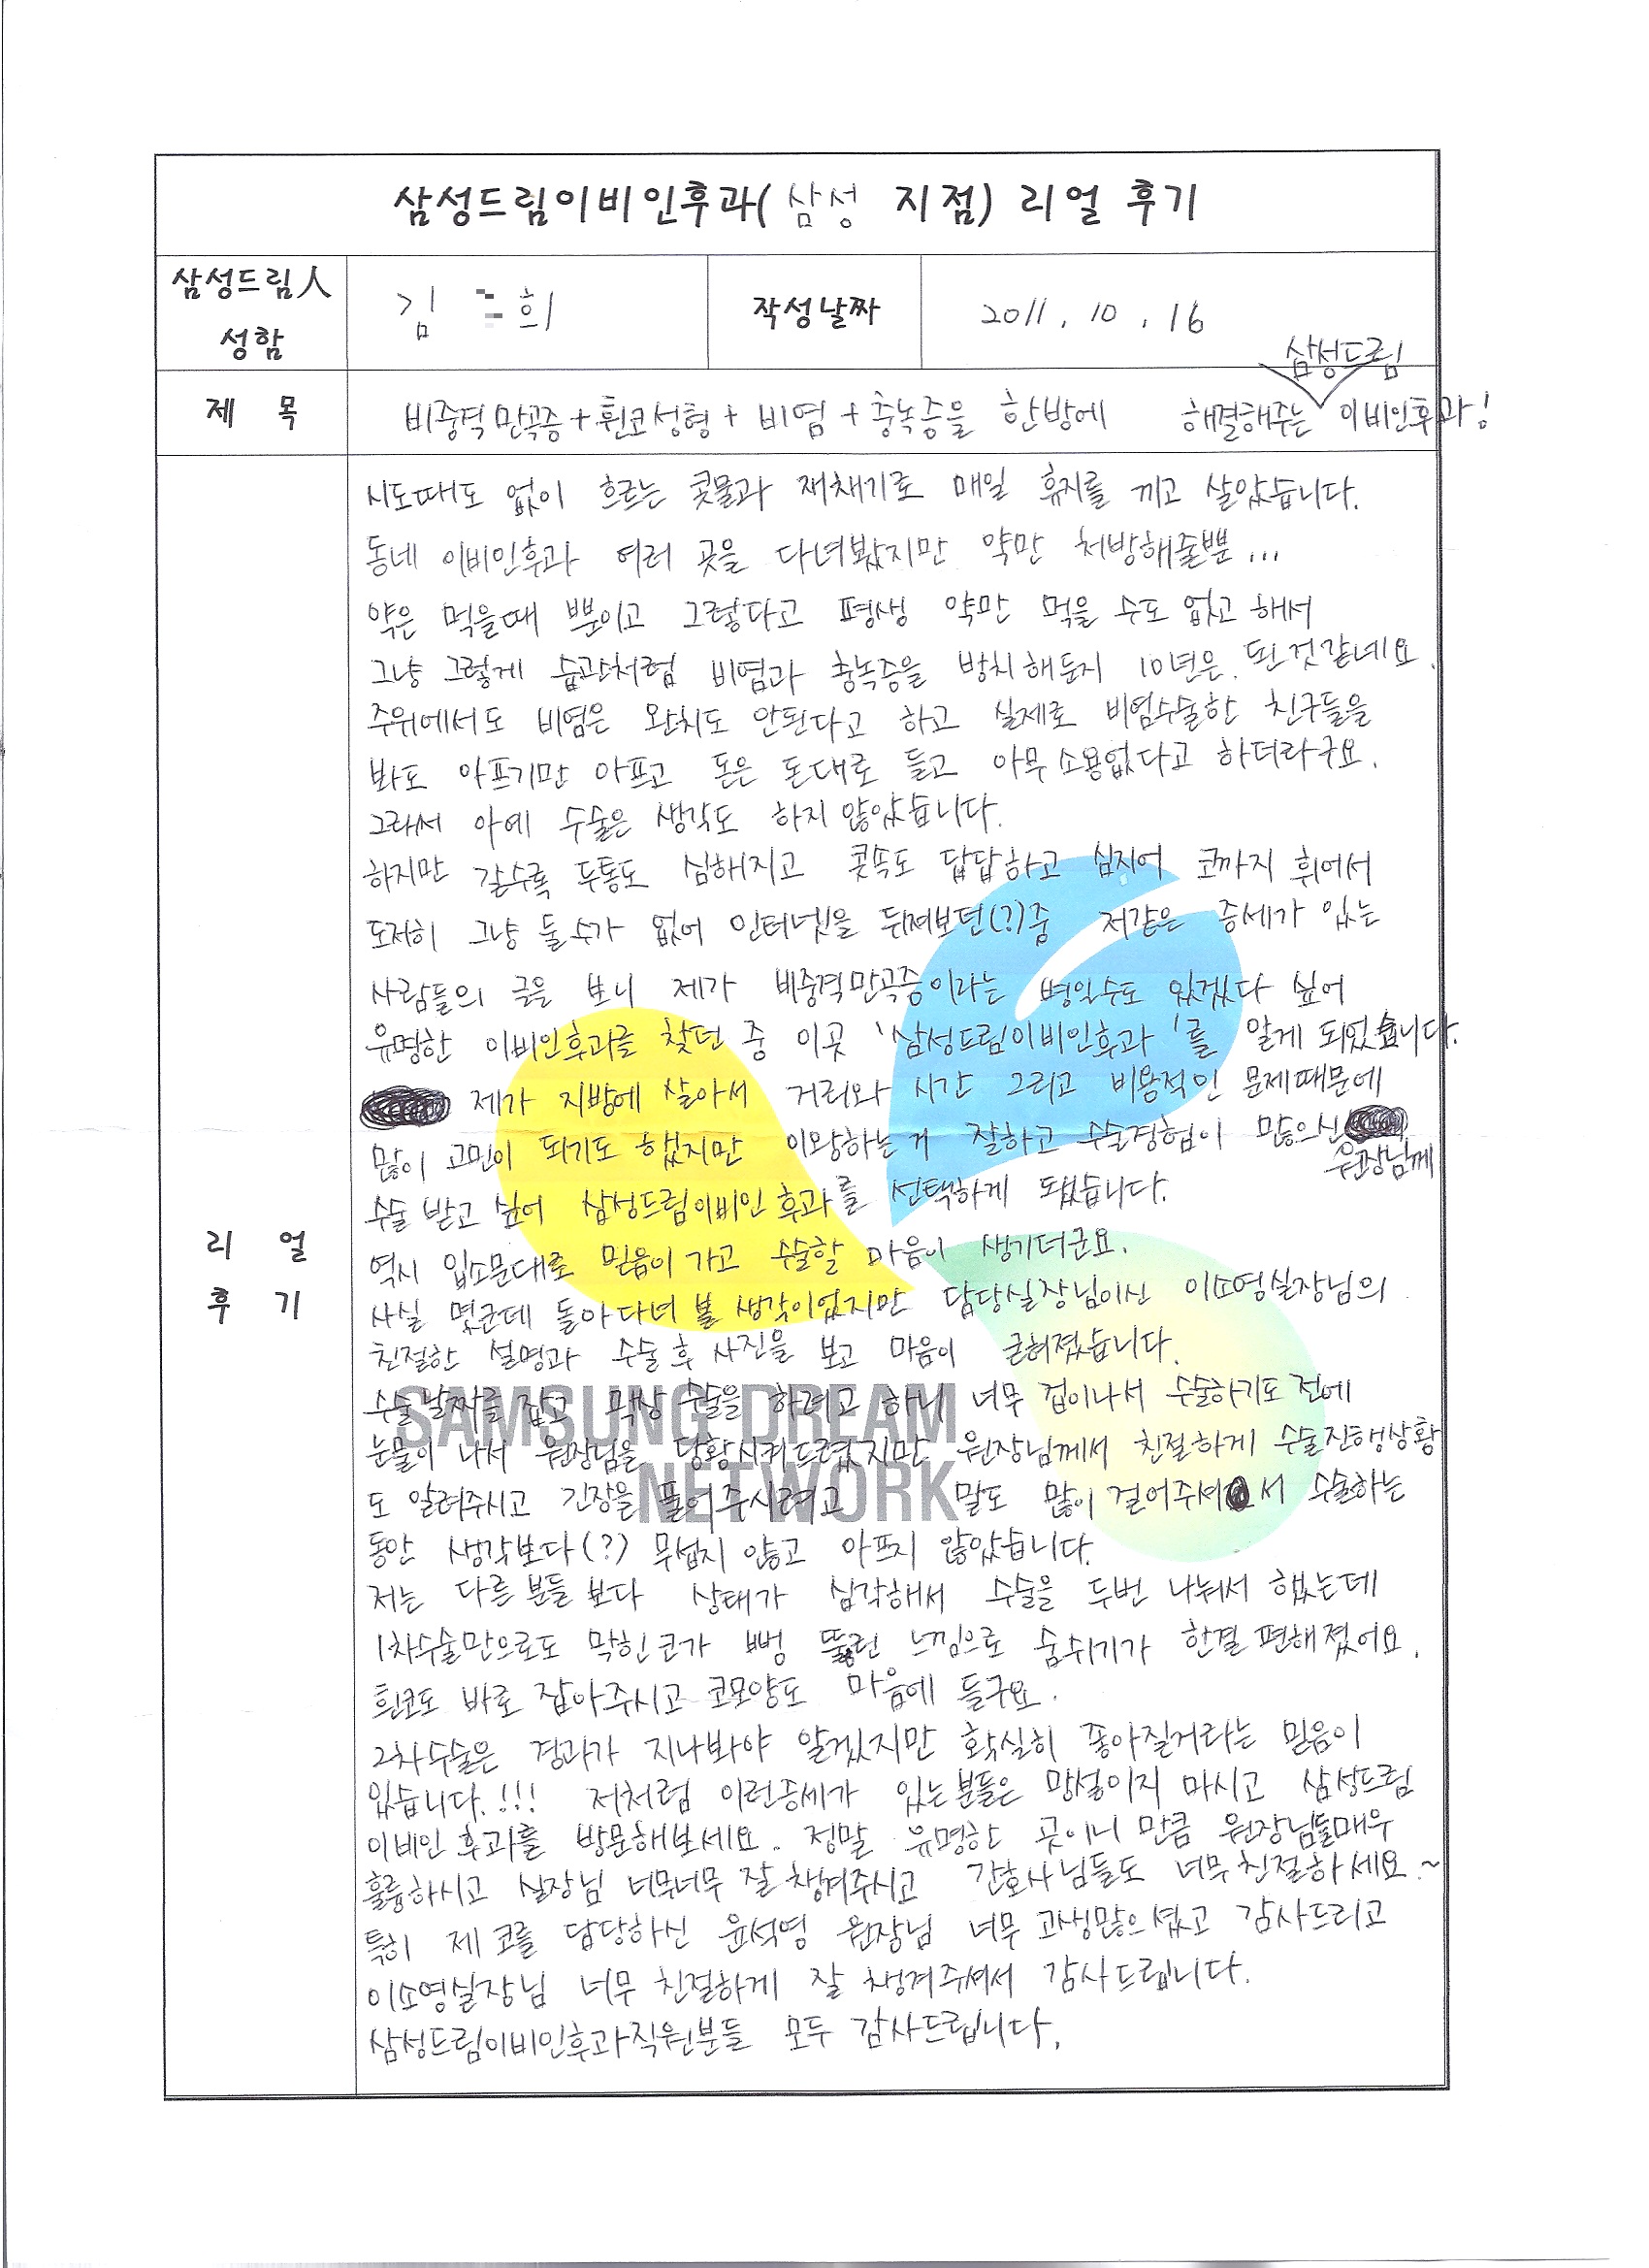 삼성드림이비인후과( 삼성 지점) 리얼 후기
삼성드림人
성함
김 희
작성날짜
2011. 10. 16
제 목
비중격만곡증+휜코성형+비염+충녹증을 한방에 해결해주는 삼성드림 이비인후과!
리 얼
후 기
시도때도 없이 흐르는 콧물과 재채기로 매일 휴지를 끼고 살았습니다.
동네 이비인후과 여러 곳을 다녀봤지만 약만 처방해줄뿐...
약은 먹을때 뿐이고 그렇다고 평생 약만 먹을 수도 없고 해서
그냥 그렇게 습관처럼 비염과 충녹증을 방치해둔지 10년은 된것같네요.
주위에서도 비염은 완치도 안된다고 하고 실제로 비염수술한 친구들을
봐도 아프기만 아프고 돈은 돈대로 들고 아무소용없다고 하더라구요.
그래서 아예 수술은 생각도 하지 않았습니다.
하지만 갈수록 두통도 심해지고 콧속도 답답하고 심지어 코까지 휘어서
도저히 그냥 둘수가 없어 인터넷을 뒤져보던(?)중 저같은 증세가 있는
사람들의 글을 보니 제가 비중격만곡증이라는 병일수도 있겠다 싶어
유명한 이비인후과를 찾던 중 이곳 '삼성드림이비인후과'를 알게 되었습니다.
제가 지방에 살아서 거리와 시간 그리고 비용적인 문제때문에
많이 고민이 되기도 했지만 이왕하는거 잘하고 수술경험이 많으신 원장님께
수술 받고 싶어 삼성드림이비인후과를 선택하게 됐습니다.
역시 입소문대로 믿음이 가고 수술할 마음이 생기더군요.
사실 몇군데 돌아다녀 볼 생각이었지만 담당실장님이신 이소영실장님의
친절한 설명과 수술 후 사진을 보고 마음이 굳혀졌습니다.
수술날짜를 잡고 막상 수술을 하려고 하니 너무 겁이나서 수술하기도 전에
눈물이 나서 원장님을 당황시켜드렸지만 원장님께서 친절하게 수술진행상황
도 알려주시고 긴장을 풀어주시려고 말도 많이 걸어주셔서 수술하는
동안 생각보다(?) 무섭지 않고 아프지 않았습니다.
저는 다른분들 보다 상태가 심각해서 수술을 두번 나눠서 했는데
1차수술만으로도 막힌코가 뻥 뚫린 느낌으로 숨쉬기가 한결 편해졌어요.
흰코도 바로 잡아주시고 코모양도 마음에 들구요.
2차수술은 경과가 지나봐야 알겠지만 확실히 좋아질거라는 믿음이
있습니다.!!! 저처럼 이런증세가 있는분들은 망설이지 마시고 삼성드림
이비인후과를 방문해보세요. 정말 유명한 곳이니 만큼 원장님들매우
훌륭하시고 실장님 너무너무 잘 챙겨주시고 간호사님들도 너무친절하세요.~
특히 제 코를 담당하신 윤석영 원장님 너무 고생많으셨고 감사드리고
이소영실장님 너무 친절하게 잘 챙겨주셔서 감사드립니다.
삼성드림이비인후과직원분들 모두 감사드립니다.
SAMSUNG DREAM
NETWORK